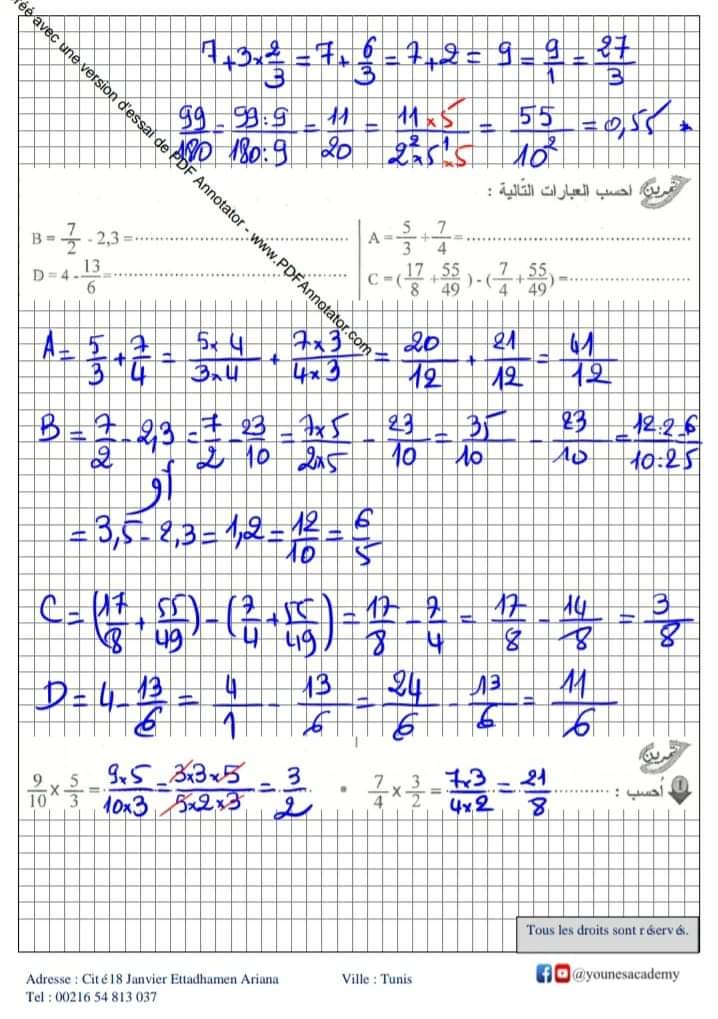 réé avec une version d'essai de PDF Annotator - www.PDFAnnotator.com
7+3×2/3 = 7+6/3 = 7+2 = 9 = 9/1 = 27/3
99/180 = 99:9/180:9 = 11/20 = 11×5/2²×5¹×5 = 55/10² = 0,55
تمرين احسب العبارات التالية :
A = 5/3 + 7/4 =
B = 7/2 - 2,3 =
C = (17/8 + 55/49) - (7/4 + 55/49) =
D = 4 - 13/6 =
A = 5/3 + 7/4 = 5×4/3×4 + 7×3/4×3 = 20/12 + 21/12 = 41/12
B = 7/2 - 2,3 = 7/2 - 23/10 = 7×5/2×5 - 23/10 = 35/10 - 23/10 = 12:2=6/10:2=5
أو
= 3,5 - 2,3 = 1,2 = 12/10 = 6/5
C = (17/8 + 55/49) - (7/4 + 55/49) = 17/8 - 7/4 = 17/8 - 14/8 = 3/8
D = 4 - 13/6 = 4/1 - 13/6 = 24/6 - 13/6 = 11/6
تمرين
1 أحسب : 7/4 × 3/2 = 7×3/4×2 = 21/8
9/10 × 5/3 = 9×5/10×3 = 3×3×5/5×2×3 = 3/2
Tous les droits sont réservés.
Adresse : Cité18 Janvier Ettadhamen Ariana Ville : Tunis @younesacademy
Tel : 00216 54 813 037